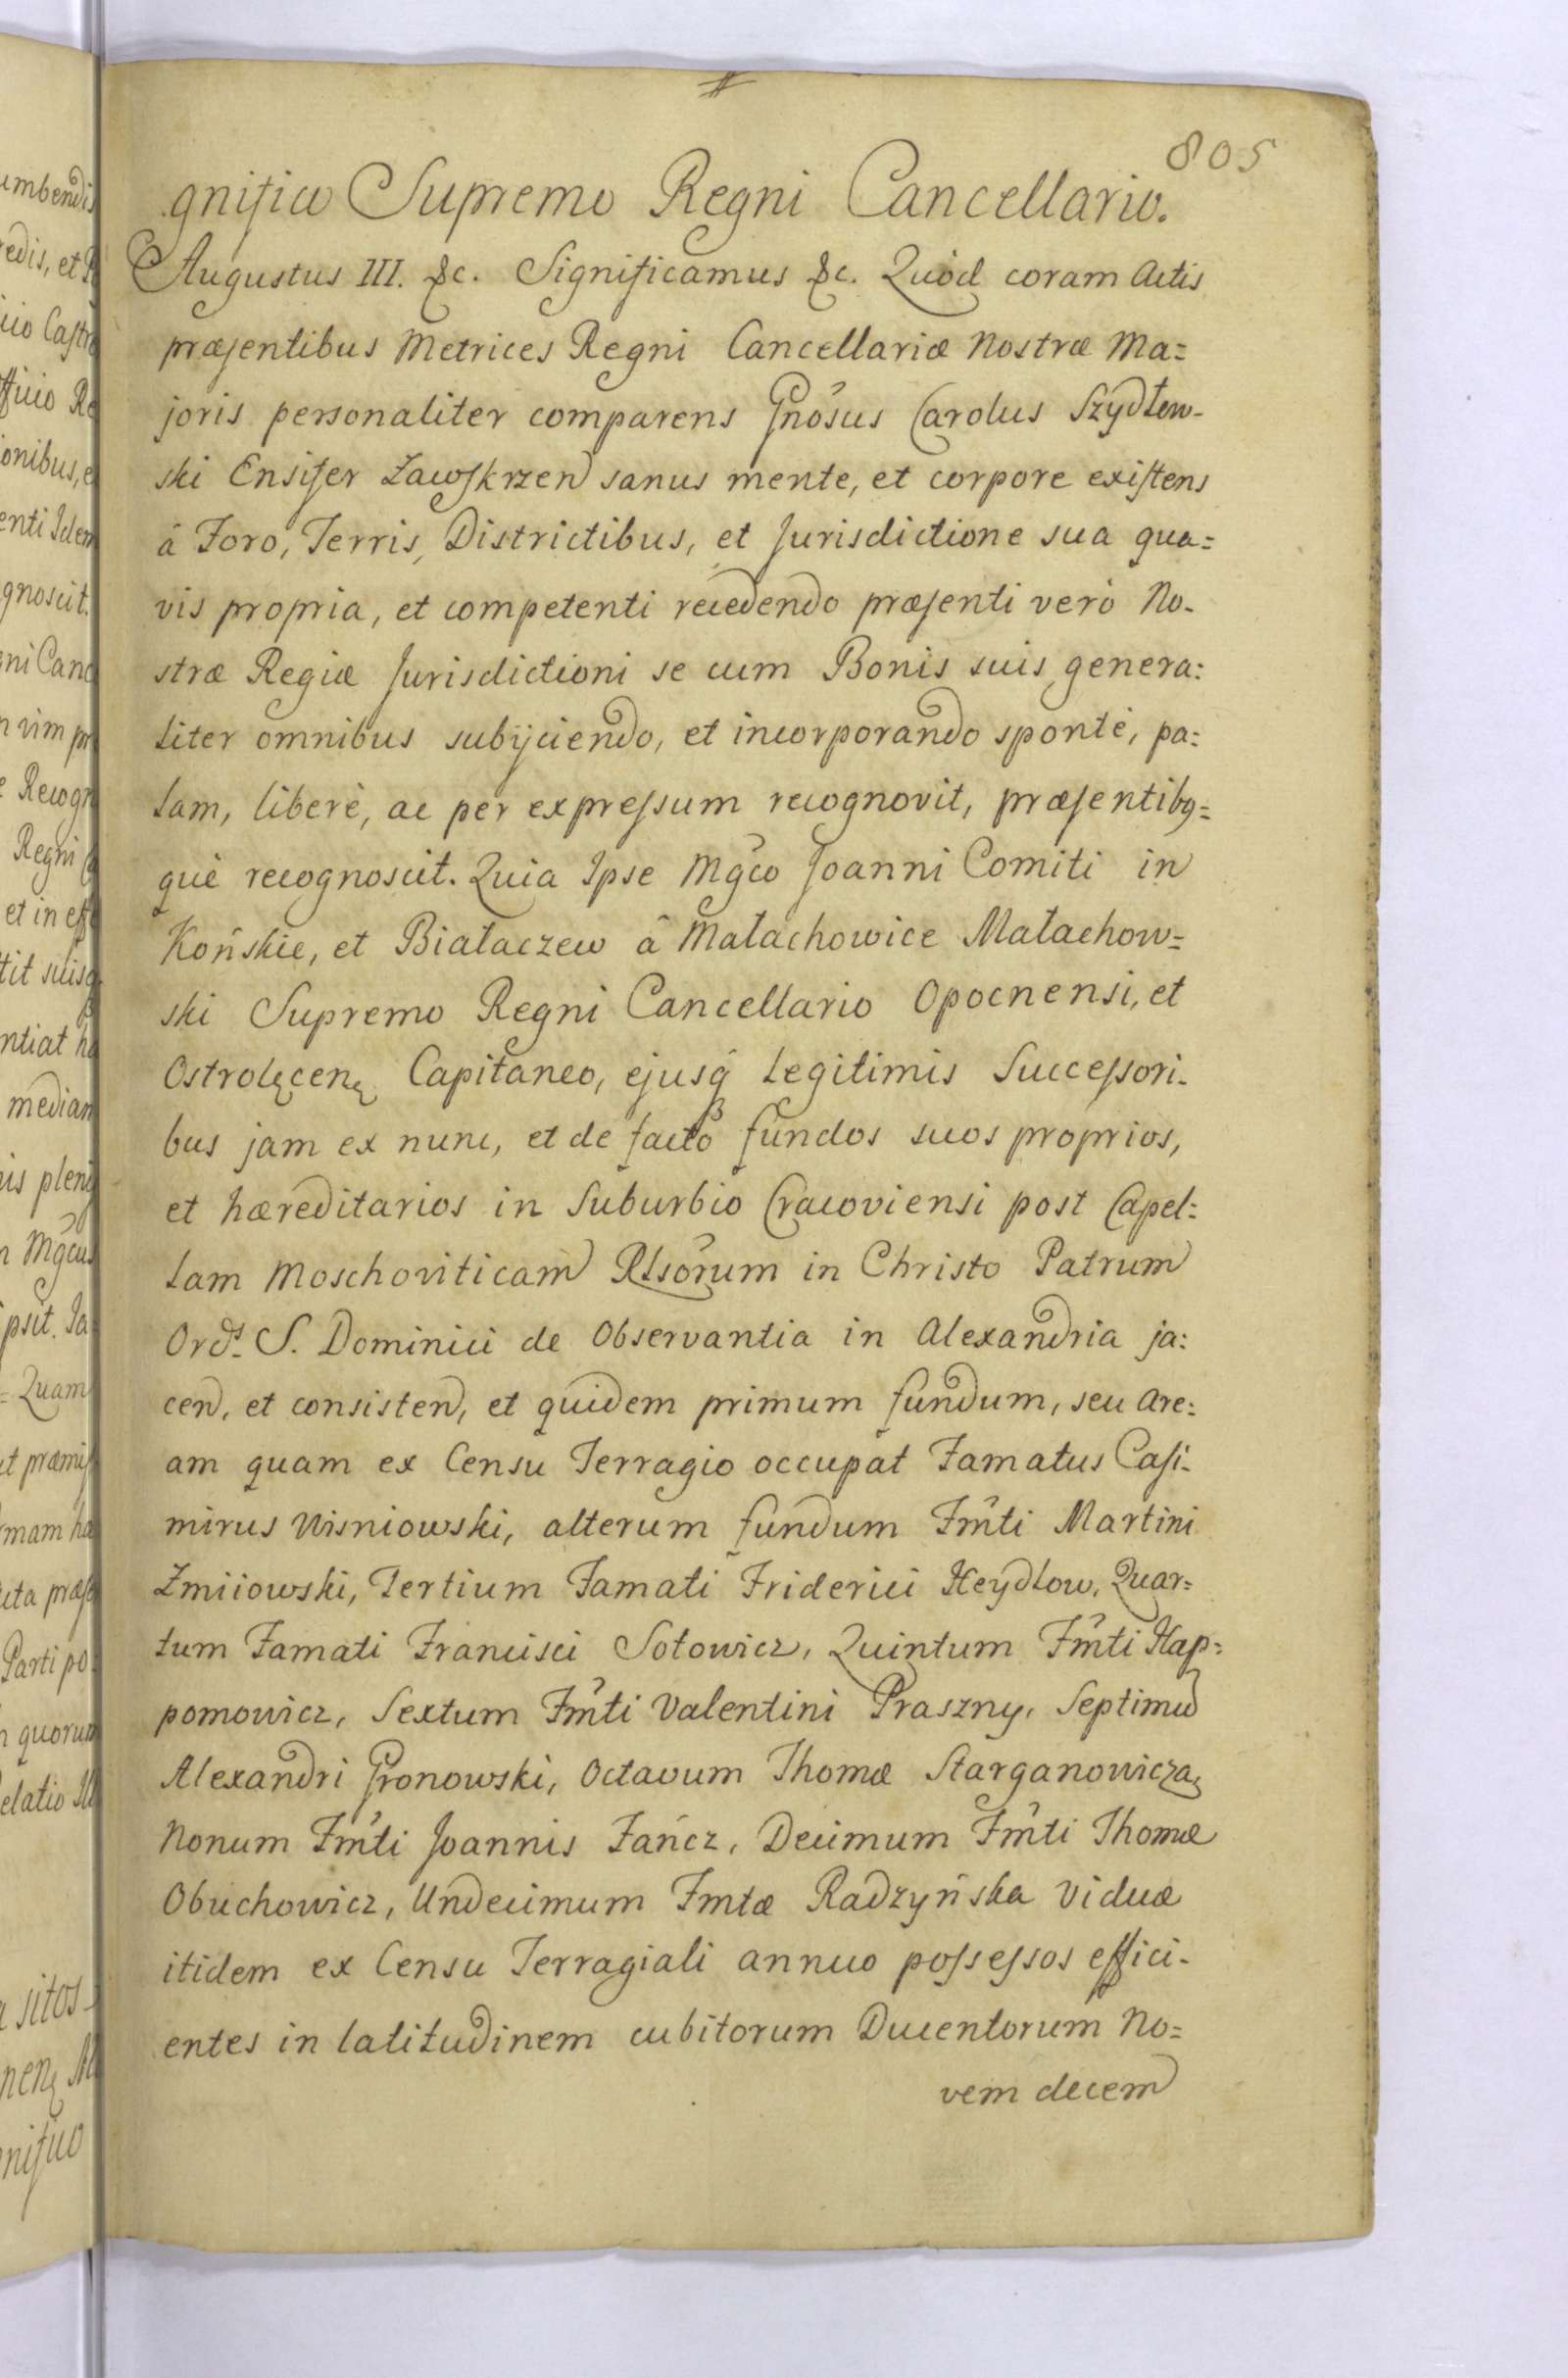 805
gnifico Supremo Regni Cancellario.
Augustus III. &c. Significamus &c. Quòd coram Actis
præsentibus Metrices Regni Cancellariæ Nostræ Ma=
joris personaliter comparens Gnosus Carolus Szydłow-
ski Ensifer Zawskrzen sanus mente, et corpore existens
â Foro, Terris, Districtibus, et Jurisdictione sua qua=
vis propria, et competenti recedendo præsenti verò No-
stræ Regiæ Jurisdictioni se cum Bonis suis genera:
liter omnibus subijciendo, et incorporando spontè, pa:
lam, liberè, ac per expressum recognovit, præsentibq=
què recognoscit. Quia Ipse Mgco Joanni Comiti in
Końskie, et Białaczew â Małachowice Małachow=
ski Supremo Regni Cancellario Opocnensi, et
Ostrolęcenę Capitaneo, ejusq Legitimis Successori-
bus jam ex nunc, et de facto fundos suos proprios,
et hæreditarios in Suburbio Cracoviensi post Capel:
lam Moschoviticam Rlsorum in Christo Patrum
Ords. S. Dominici de Observantia in Alexandria ja:
cen, et consisten, et quidem primum fundum, seu are:
am quam ex Censu Terragio occupat Famatus Casi-
mirus Wisniowski, alterum fundum Fmti Martini
Zmiiowski, Tertium Famati Friderici Heydlow, Quar=
tum Famati Francisci Sotowicz, Quintum Fmti Hap=
pomowicz, Sextum Fmti Valentini Praszny, Septimum
Alexandri Gronowski, Octavum Thomæ Starganowicza,
Nonum Fmti Joannis Fańcz, Decimum Fmti Thomæ
Obuchowicz, Undecimum Fmtæ Radzyńska Viduæ
itidem ex Censu Terragiali annuo possessos effici-
entes in latitudinem cubitorum Ducentorum No=
vem decem